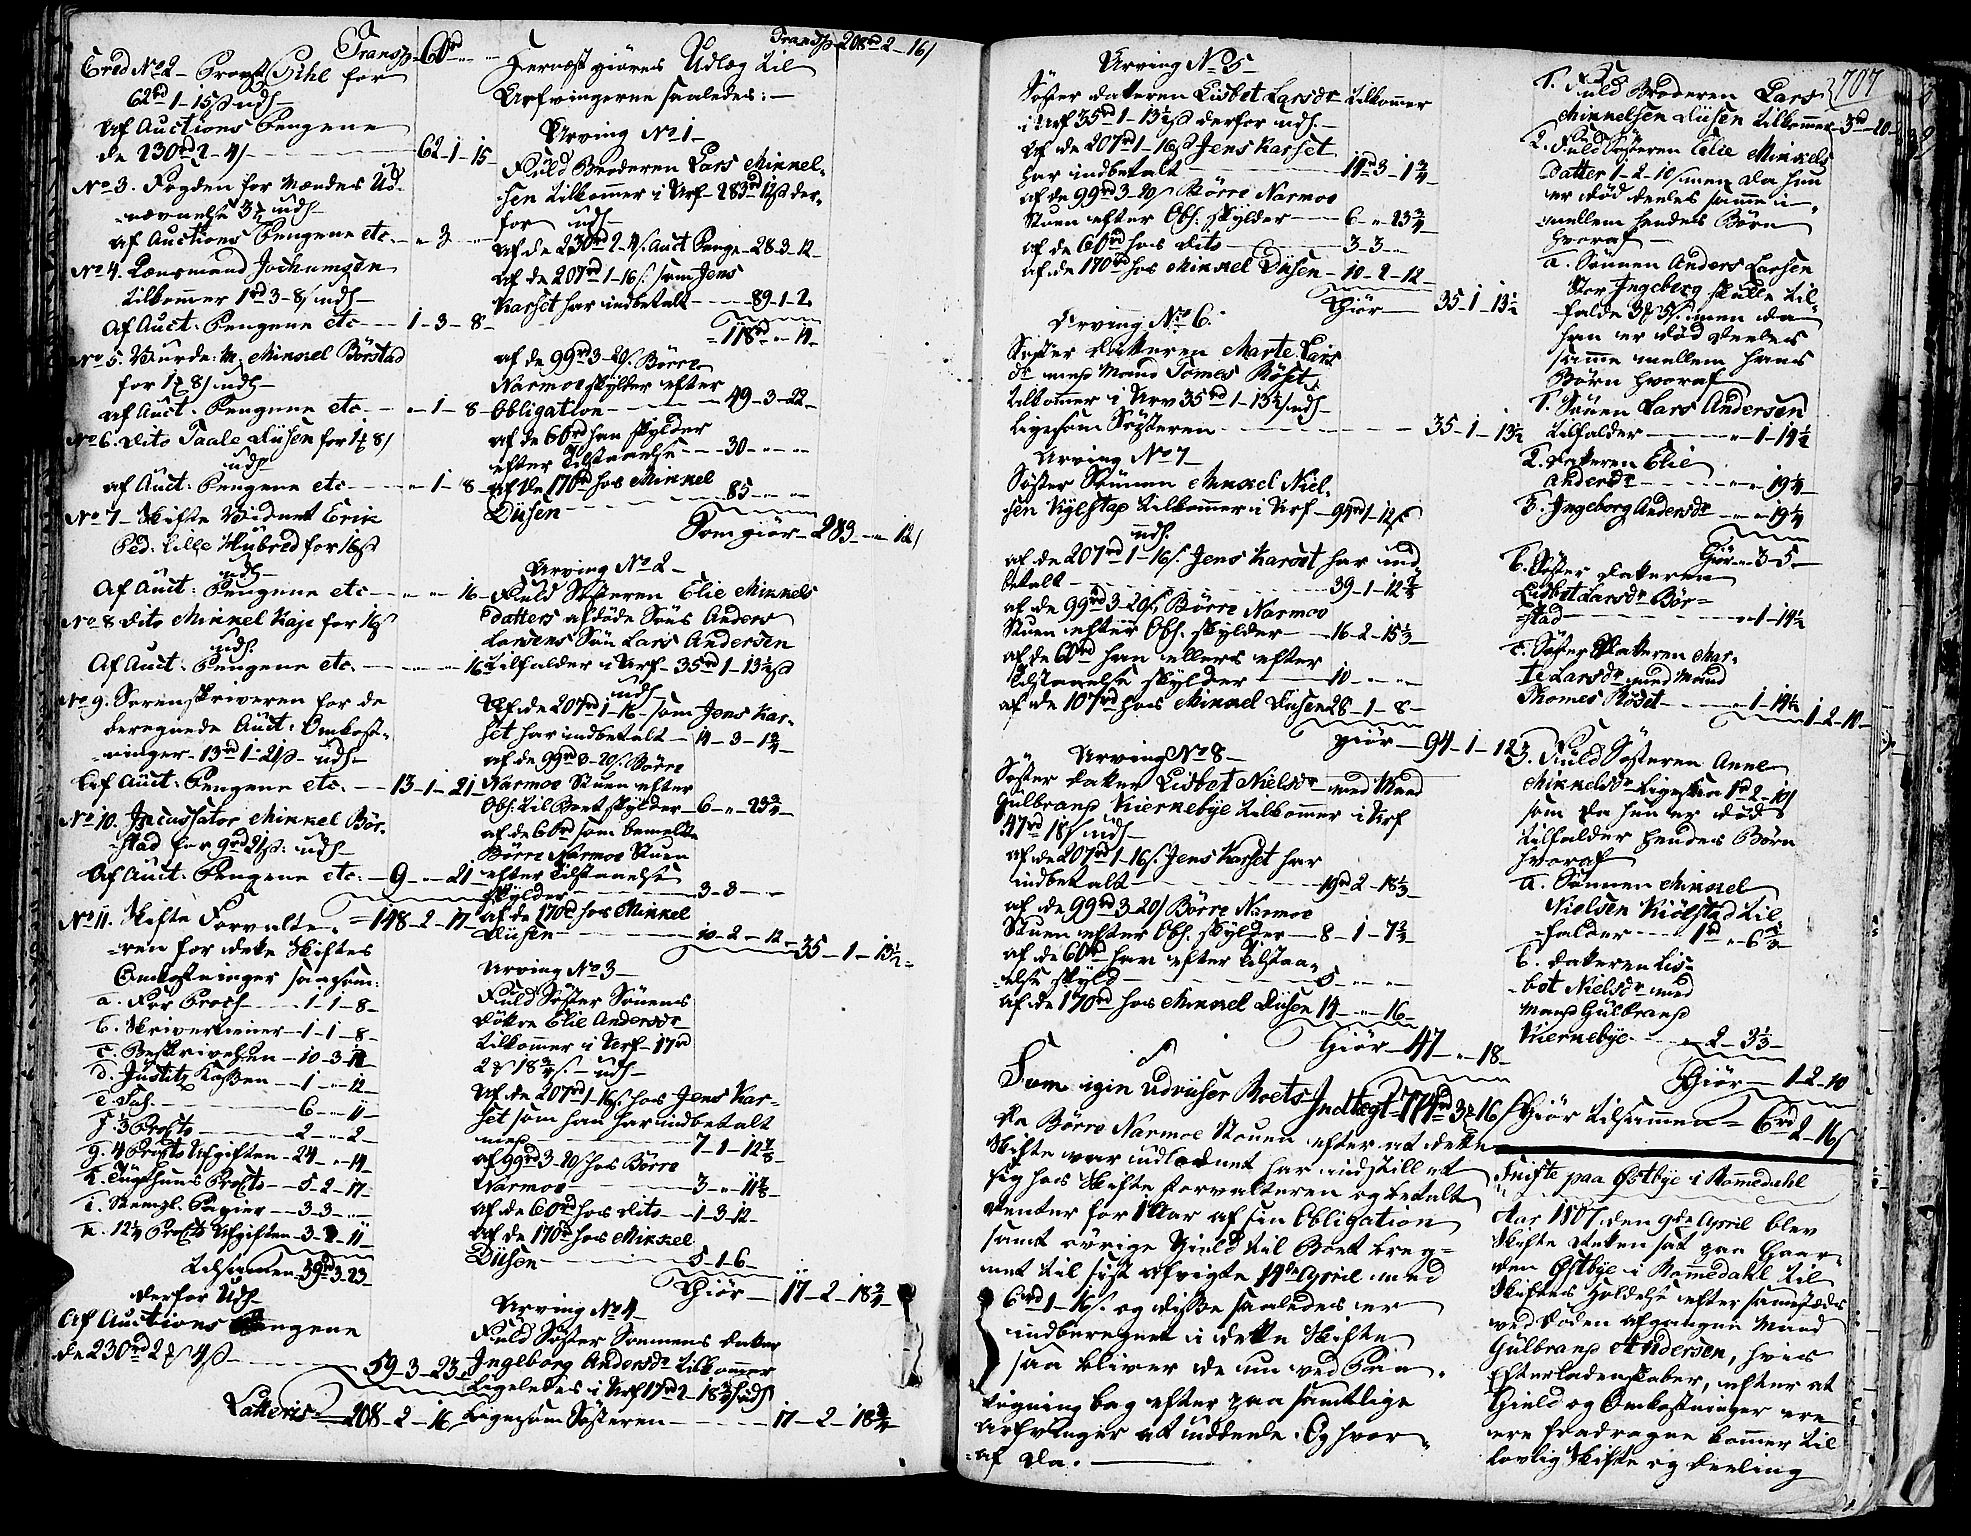 Transp. 60rd
Cred No 2 - Provst Pihl for
62rd 1-15s uds
af Auctions Pengene
de 230rd 2-4s - 62-1-15
No 3. Fogden for Mændes Ud-
nævnelse 3 uds
af Auctions Pengene etc. - 3 -
No 4. Lensmand Jochumsen
tilkommer 1rd 3-8s uds
af Auct: Pengene etc - 1-3-8
No 5. Vurd: M. Mikkel Börstad
for 1 8s uds
af Auct: Pengene etc. - 1-8
No 6. Dito Taale Diisen for 1 8s
uds
af Auct: Pengene etc - 1-8
No 7 - Skifte Vidnet Erik
Ped: Lille Hubred for 16s
uds
Af Auct: Pengene etc - 16
No 8 dito Mikkel Kaje for 16s
uds
Af Auct: Pengene etc. - 16
No 9. Sorenskriveren for de
beregnede Auct: Omkost-
ninger - 13rd 1-21s - uds
Af Auct: Pengene etc. - 13-1-21
No 10. Incassator Mikkel Bör-
stad for 9rd 21s: uds
Af Auct: Pengene etc. - 9-"-21
= 148-2-17
No 11. Skifte Forvalte-
ren for dette Skiftes
Omkostninger saasom:
a. For Proch - 1-1-8
b. Skriverleier - 1-1-8
c. Beskrivelsen - 10-3-
d. Justitz Kassen - 1-"-12
e. Sas. - 6-"-11
f. 3 Procto - 2-"-2
g. 4 Procto Afgiften - 24-"-14
h. Tugthuus Procto - 5-2-17
i. Stempl. Papier - 3-3-
k. 12½ Procto Afgiften - 3- -11
Tilsammen 59rd 3-23
derfor Uds
Af Auctions Pengene
de 230rd 2 4s - 59-3-23
Latteris = 208-2-16
Transp 208rd 2-16s
Hernæst giöres Udlæg til
Arfvingerne saaledes:-
Arving No 1-
Fuld Broderen Lars Mikkel-
sen tilkommer i Arf - 283rd 12s der-
for uds
af de 230rd 2-4s Auct Penge - 28-3-12
af de 207rd 1-16s. som Jens
Karset har indbetalt - 89-1-2
= 118rd "-14
af de 99rd 3-20s Börre
Narmoe skylder efter
Obligation - 49-3-22
af de 60rd han skylder
efter Tilstaaelse - 30-
af de 170rd hos Mikkel
Diisen - 85
Som giör - 283-"-12s
Arving No 2-
Fuld Søsteren Elie Mikkels
Datters afdöde Søns Anders
Larsens Sön Lars Andersen
tilfalder i Arf - 35rd 1-13½s
uds
Af de 207rd 1-16- som Jens Kar-
set har indbetalt - 14-3-1¾
af de 99rd 3-20s Börre
Narmoe Stuen efter
Obl. til Boet skylder - 6-"-23¾
af de 60rd som bemelte
Börre Narmoe Stuen
efter Tilstaaelse
skylder - 3-3-
af de 170rd hos Mikkel
Diisen - 10-2-12 - 35-1-13½
Arving No 3-
Fuld Søster Sönens
Dötre Elie Andersdr
tilkommer i Arf - 17rd
2 18¾s - uds
Af de 207rd 1-16s hos Jens Kar-
set som han har indbetalt
med - 7-1-12⅞
af 99rd 3-20s hos Börre
Narmoe - 3-"-11⅞
af de 60rd hos dito - 1-3-12
af de 170rd hos Mikkel
Diisen - 5-1-6
Giör - 17-2-18¾
Arving No 4
Fuld Søster Sonnens Datter
Ingeborg Andersdr tilkommer
ligeledes i Arf 17rd 2-18¾ uds
ligesom Søsteren - 17-2-18¾
Arving No 5-
Søster Datteren Lisbet Larsdr tilkommer
i Arf 35rd 1-13½s derfor uds.
Af de 207rd 1-16s Jens Karset
har indbetalt - 14rd 3-1¾
af de 99rd 3-20s Börre Narmoe
Stuen efter Obl. skylder - 6-"-23¾
af de 60rd hos dito - 3-3-
af de 170rd hos Mikkel Diisen - 10-2-12
Giör - 35-1-13½
Arving No 6.
Søster Datteren Marte Lars
dr med Mand Tomes Röset
tilkommer i Arv 35rd 1-13½s uds
ligesom Søsteren - 35-1-13½
Arving No 7-
Søster Sönnen Mikkel Niel-
sen Kylstad tilkommer i Arf - 94rd 1-12s
uds.
af de 207rd 1-16s. Jens Karset har ind
betalt - 39-1-12
af de 99rd 3-20s Börre Narmoe
Stuen efter Obl. skylder - 16-2-15⅓
af de 60rd han ellers efter
Tilstaaelse skylder - 10-
af de 107rd hos Mikkel Diisen 28-1-8
giör - 94-1-12
Arving No 8-
Søster Datter Lisbet Nielsdr med Mand
Gulbrand Kiernebye tilkommer i Arf
47rd 18s uds
af de 207rd 1-16s. Jens Karset har
indbetalt - 19rd 2-18⅓
af de 99rd 3-20s Börre Narmoe
Stuen efter Obl. skylder - 8-1-7⅔
af de 60rd han efter Tilstaa-
else skyld - 5-
af de 170rd hos Mikkel Diisen 14-"-16
Giör - 47-"-18
Som igien udviiser Boets Indtægt = 774rd 3 16s
Da Börre Narmoe Stuen efter at dette
Skifte var udlodnet har indstillet
sig hos Skifte Forvalteren og betalt
Renter for 1 Aar af sin Obligation
samt övrige Gield til Boet bereg-
net til sist afvigte 14de April med
6rd 1-16s. og disse saaledes er
indberegnet i dette Skifte
saa bliver de nu ved Paa-
tegning bag efter paa samtlige
Arfvinger at uddeele. Og hvor-
af da. -
707
1. Fuld Broderen Lars
Mikkelsen Diisen tilkommer - 3rd 20
2. Fuld Søsteren Elie Mikkels
Datter 1-2-10s men da hun
er död deeles samme i-
mellem hendes Börn
hvoraf
a. Sönnen Anders Larsen
Stor Ingeberg skulle til-
falde 3 5s. men da
han er död deeles
samme mellem hans
Börn hvoraf
1. Sönen Lars Andersen
tilfalder - "-1-14½
2. Datteren Elie
Andersdr - "-"-19¼
3. Ingeborg Andersdr - "-"-19¼
Giör - 3-5
b. Søster Datteren
Lisbet Larsdr Bör-
stad - "-1-14½
c. Søster Datteren Mar-
te Larsdr med Mand
Thomes Röset - 1-14½ 1-2-10
3. Fuld Søsteren Anne
Mikkelsdr ligesaa 1rd 2-10s
som da hun er död
tilfalder hendes Börn
hvoraf
a. Sönnen Mikkel
Nielsen Kiölstad til-
falder - 1rd "-6⅔
b. Datteren Lis-
bet Nielsdr med
Mand Gulbrand
Kiernebye - "-2-3⅓
Giör - 1-2-10
Giör tilsammen - 6rd 2-16s
Skifte paa Østbye i Romedahl
Aar 1807. den 9de April blev
Skifte Retten sat paa Gaar-
den Østbye i Romedahl til
Skiftes Holdelse efter sammesteds
ved Döden afgangne Mand
Gulbrand Andersen, hvis
Efterladenskaber, efter at
Gield og Omkostninger ere
ere fradragne kommer til
lovlig Skifte og Deeling